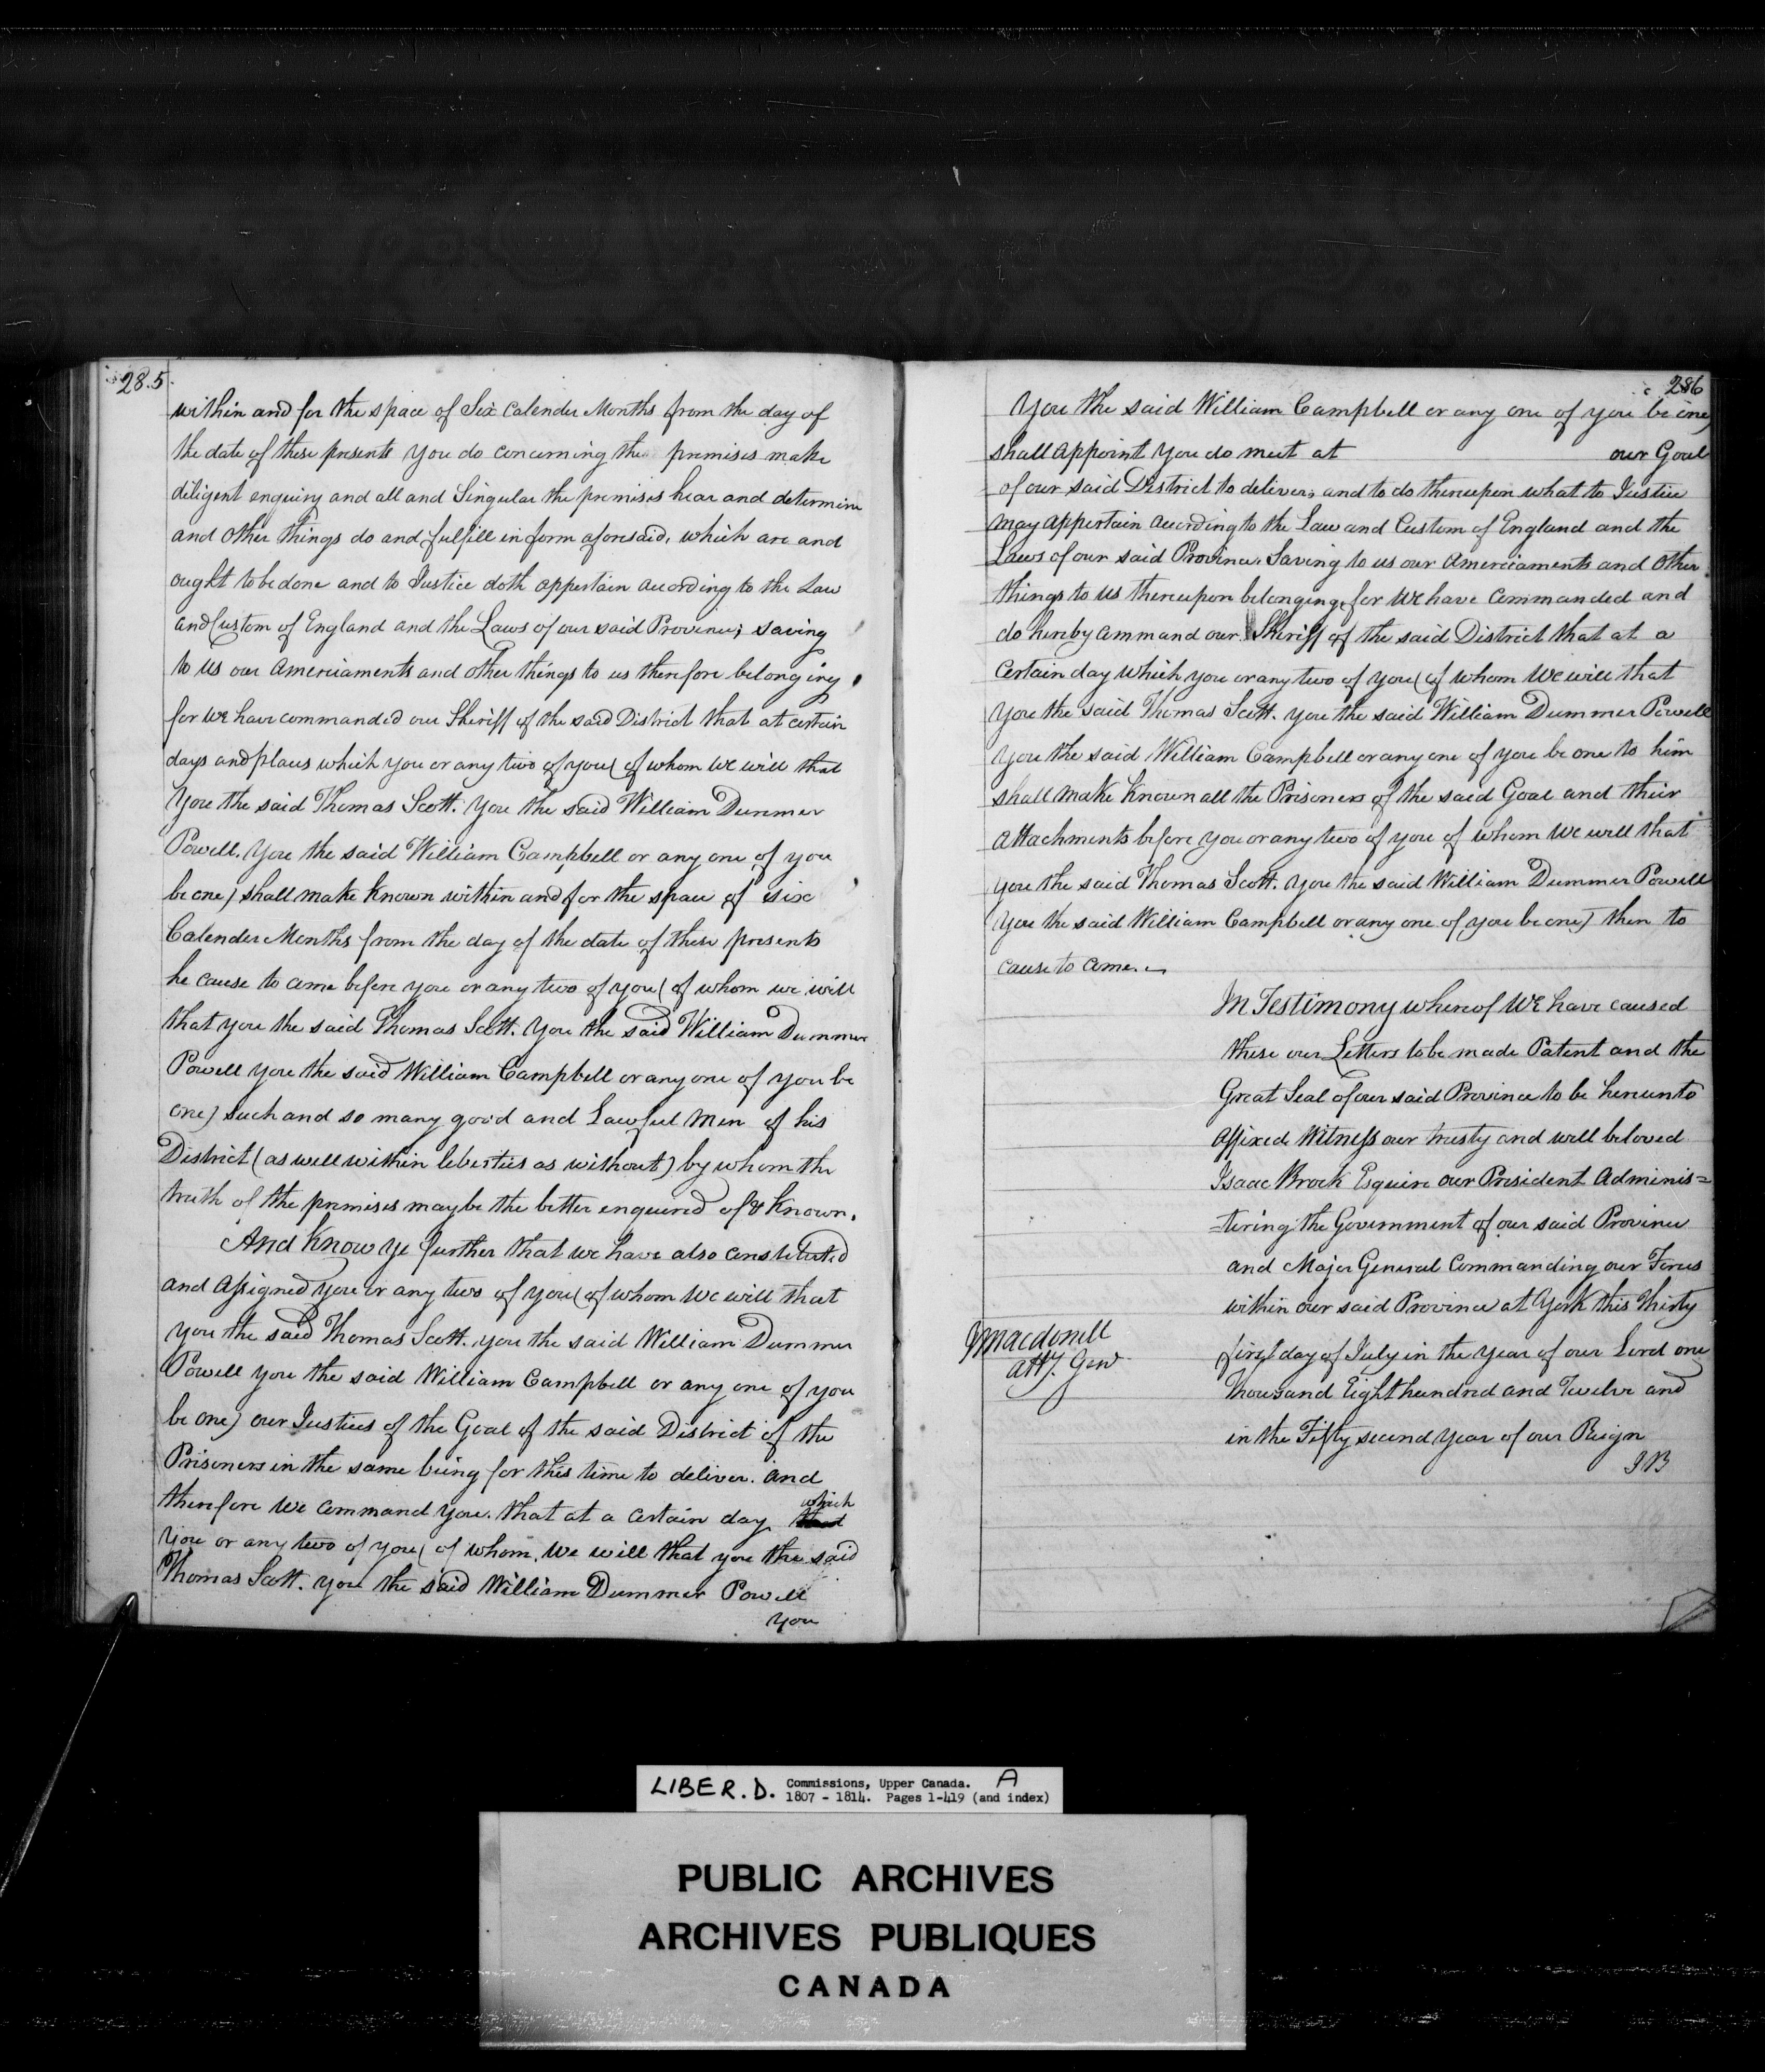 285
within and for the space of Six Calender Months from the day of
the date of these presents you do concerning the premises make
diligent enquiry and all and Singular the premises hear and determine
and other things do and fulfill in form aforesaid, which are and
ought to be done and to Justice doth appertain according to the Law
and Custom of England and the Laws of our said Province; saving
to us our amerciaments and other things to us therefore belonging,
for we have commanded our Sheriff of the said District that at certain
days and places which you or any two of you (of whom we will that
you the said Thomas Scott. you the said William Dummer
Powell. you the said William Campbell or any one of you
be one) shall make known within and for the space of six
Calender Months from the day of the date of these presents
he cause to come before you or any two of you (of whom we will
that you the said Thomas Scott. you the said William Dummer
Powell you the said William Campbell or any one of you be
one) such and so many good and Lawful men of his
District (as well within liberties as without) by whom the
truth of the premises may be the better enquired of & known.
And Know ye further that we have also constituted
and assigned you or any two of you (of whom we will that
you the said Thomas Scott. you the said William Dummer
Powell you the said William Campbell or any one of you
be one) our Justices of the Goal of the said District of the
Prisoners in the same being for this time to deliver. and
therefore we command you. that at a certain day which
you or any two of you (of whom, we will that you the said
Thomas Scott. you the said William Dummer Powell
you
286
you the said William Campbell or any one of you be one)
shall appoint you do meet at our Goal
of our said District to deliver, and to do thereupon what to Justice
may appertain according to the Law and Custom of England and the
Laws of our said Province. Saving to us our amerciaments and other
things to us thereupon belonging, for we have commanded and
do hereby command our Sheriff of the said District that at a
certain day which you or any two of you (of whom we will that
you the said Thomas Scott. you the said William Dummer Powell
you the said William Campbell or any one of you be one to him
shall make known all the Prisoners of the said Goal and their
attachments before you or any two of you of whom we will that
you the said Thomas Scott. you the said William Dummer Powell
you the said William Campbell or any one of you be one) then to
cause to come.
In Testimony whereof we have caused
these our Letters to be made Patent and the
Great Seal of our said Province to be hereunto
affixed Witness our trusty and well beloved
Isaac Brock Esquire our President Adminis=
=tering the Government of our said Province
and Major General Commanding our Forces
within our said Province at York this Thirty
first day of July in the year of our Lord one
Thousand Eight hundred and Twelve and
in the Fifty second year of our Reign
IB
J Macdonell
atty. Gen.
LIBER. D. Commissions, Upper Canada. A
1807 - 1814. Pages 1-419 (and index)
PUBLIC ARCHIVES
ARCHIVES PUBLIQUES
CANADA